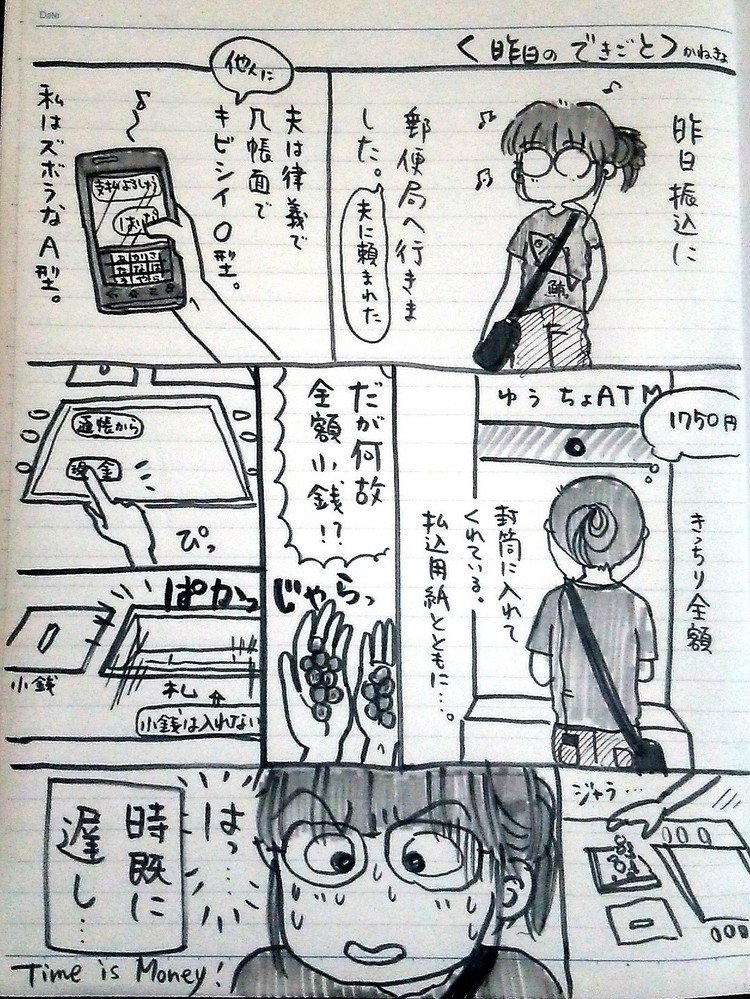 Date
〈昨日のできごと〉かねきょ
昨日振込に
郵便局へ行きま
した。
夫に頼まれた
他人に
夫は律義で
几帳面で
キビシイO型。
支払よろしゅう
はいな
私はズボラなA型。
ゆうちょATM
1750円
きっちり全額
封筒に入れて
くれている。
払込用紙とともに…。
だが何故
全額小銭!?
じゃらっ
通帳から
現金
ぴっ
ぱかっ
小銭
札
小銭は入れない
ジャラ…
はっ…
時既に
遅し…
Time is Money!